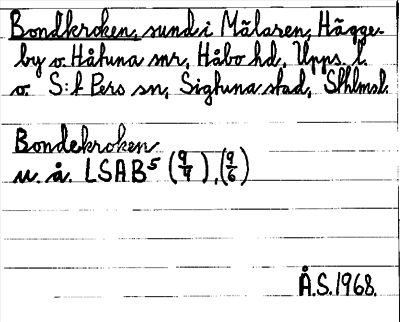 Bondkroken, sund i Mälaren, Hägge-
by o. Håtuna snr, Håbo hd, Upps. l.
o. S:t Pers sn, Sigtuna stad, Sthlmsl.
Bondekroken
u. å. LSAB⁵ (9/9), (9/6)
Å.S. 1968.